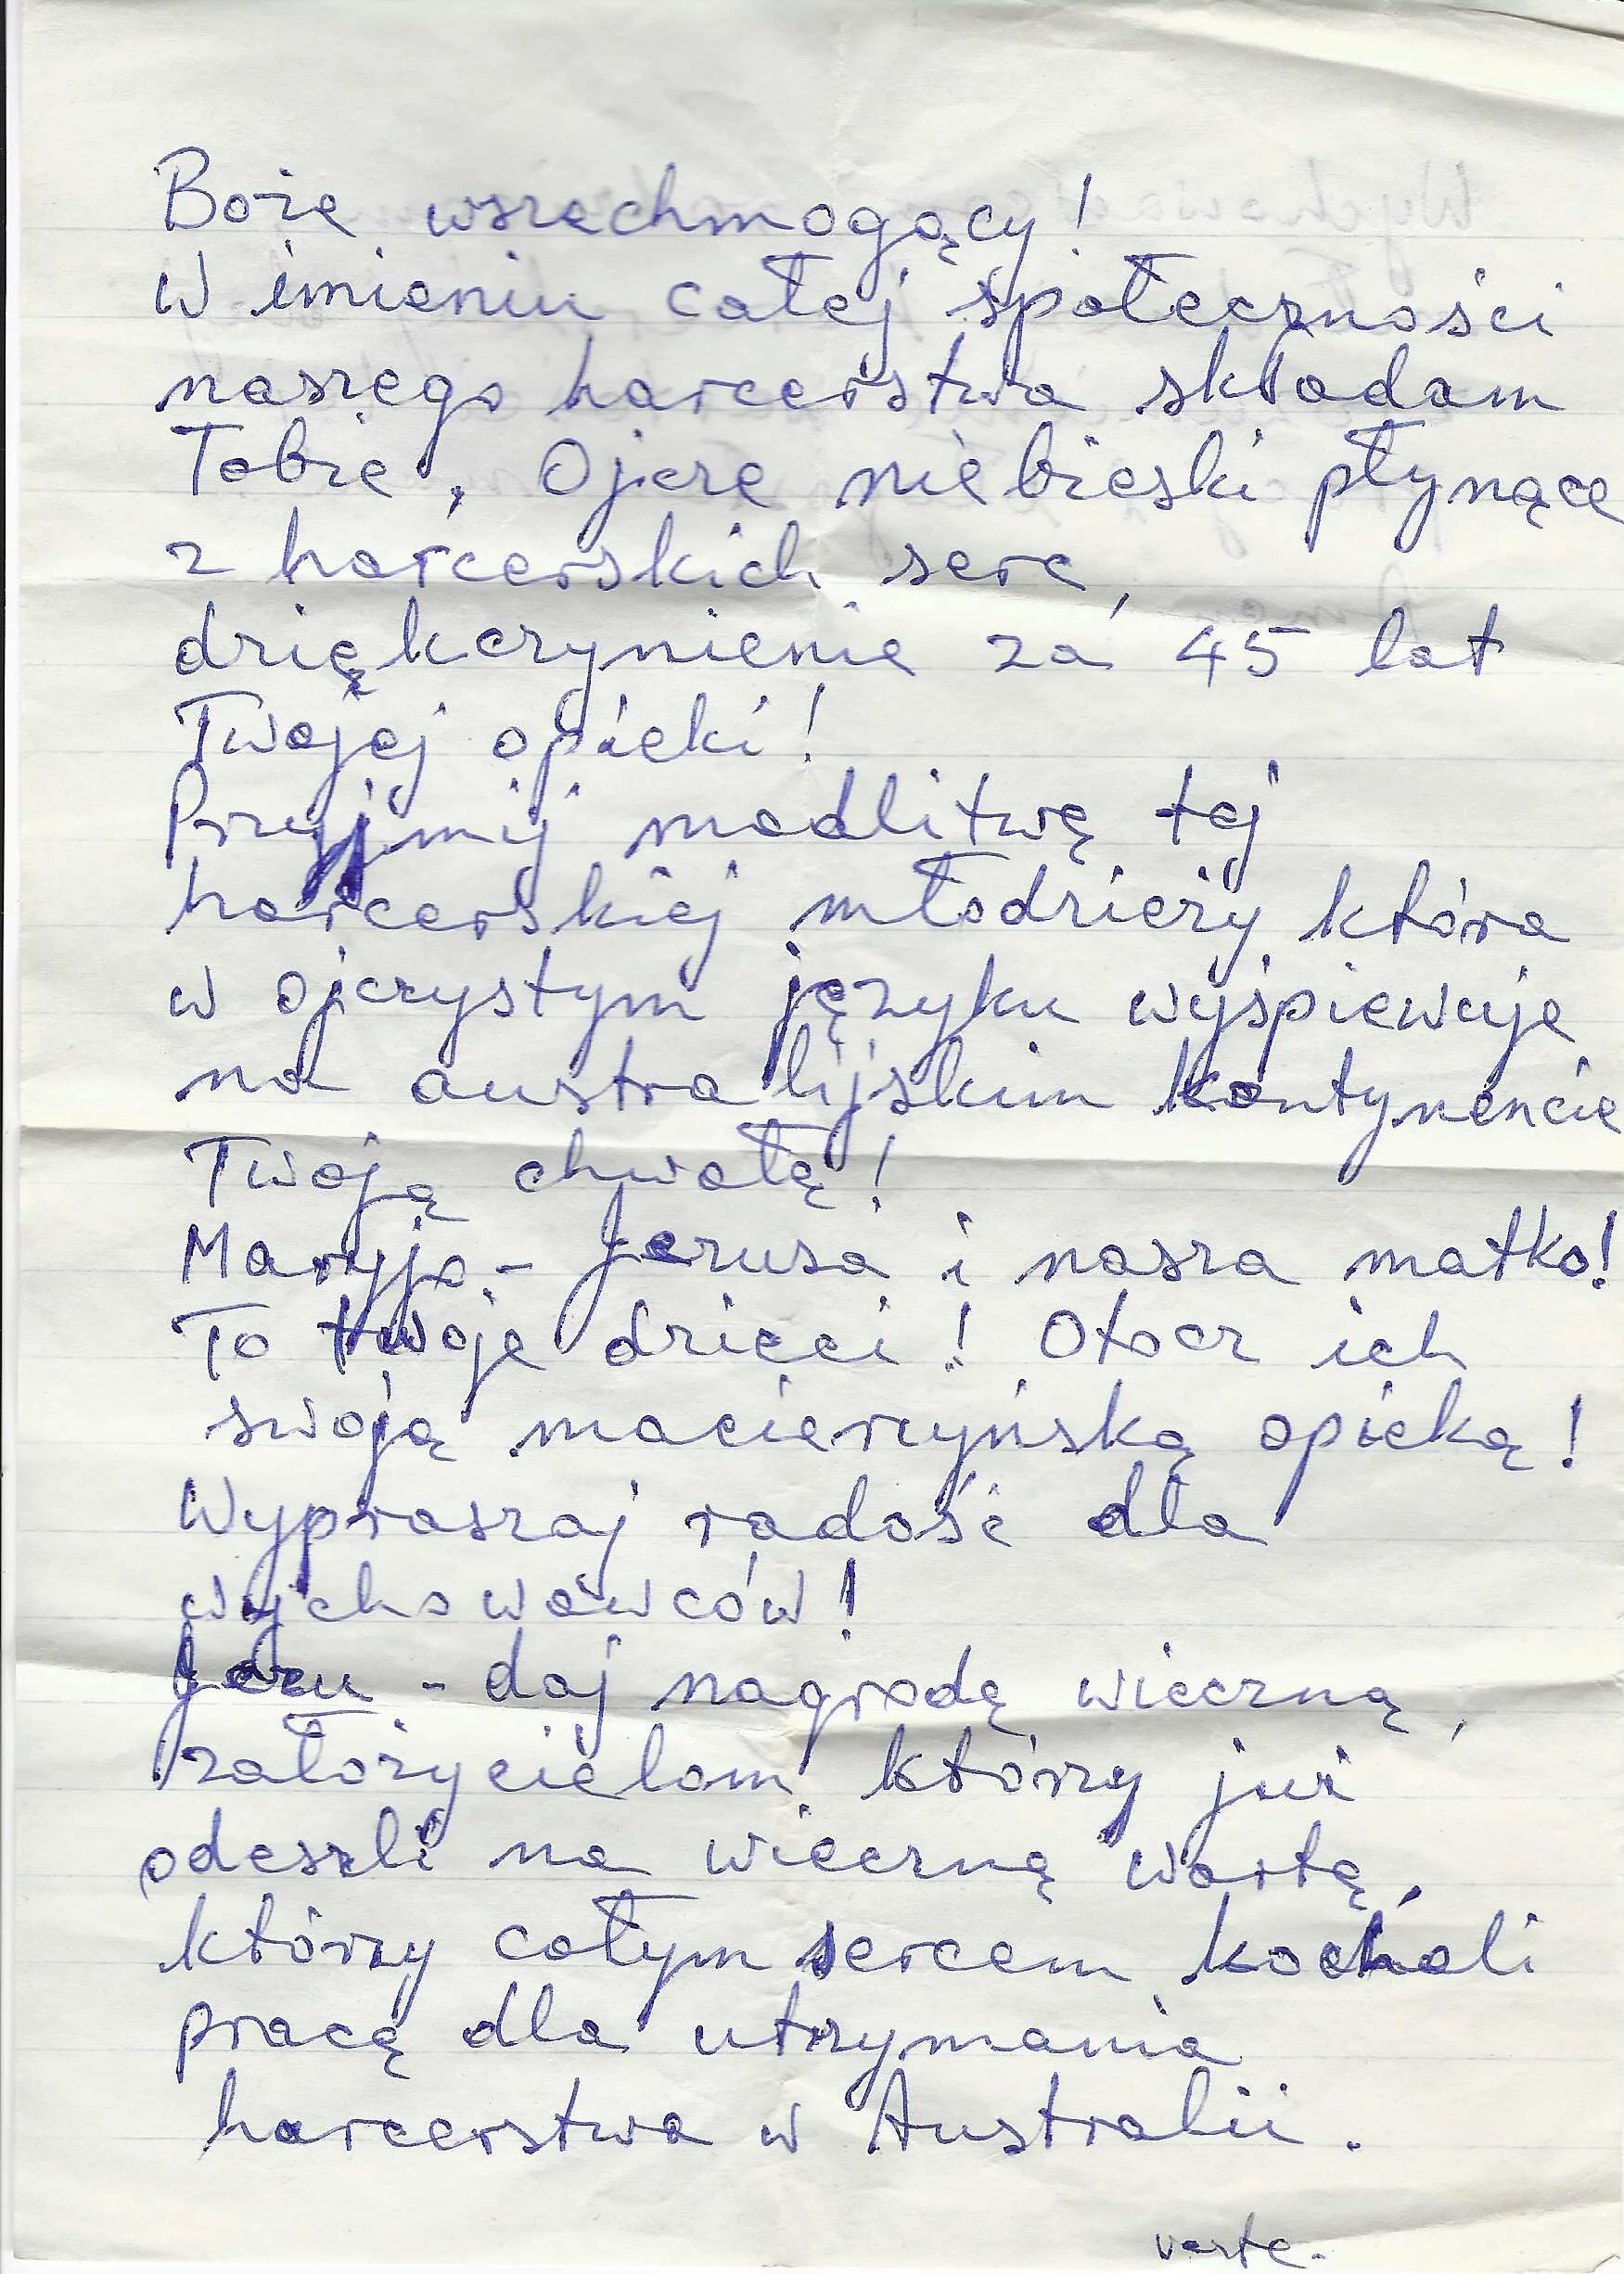 Boże wszechmogący!
W imieniu całej społeczności
naszego harcerstwa składam
Tobie, Ojcze niebieski płynące
z harcerskich serc,
dziękczynienie za 45 lat
Twojej opieki!
Przyjmij modlitwę tej
harcerskiej młodzieży która
w ojczystym języku wyśpiewuje
na australijskim kontynencie
Twoją chwałę!
Maryjo - Jezusa i nasza matko!
To twoje dzieci! Otocz ich
swoją macierzyńską opieką!
Wypraszaj radość dla
wychowawców!
Jezu - daj nagrodę wieczną,
założycielom, którzy już
odeszli na wieczną wartę,
którzy całym sercem kochali
pracę dla utrzymania
harcerstwa w Australii.
verte.